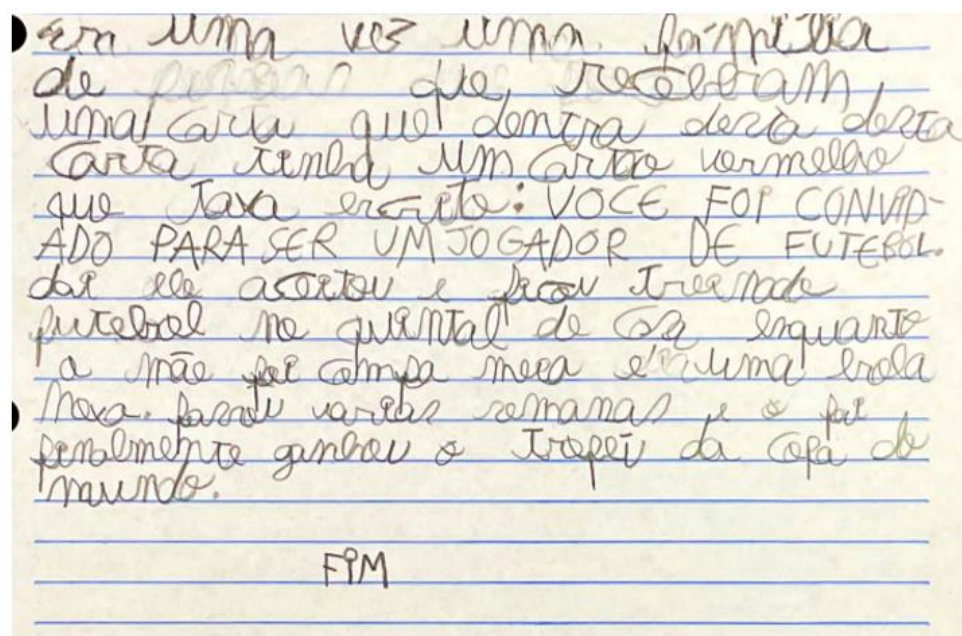 era uma vez uma família
de pessoas que receberam
uma carta que dentra desta desta
carta tinha um cartão vermelho
que Tava escrito: VOCE FOI CONVID-
ADO PARA SER UM JOGADOR DE FUTEBOL.
daí ele aceitou e ficou treinado
futebol no quintal de casa enquanto
a mãe foi compa meca e uma bola
nova. passou varias semanas e o pai
finalmente ganhou o tropeu da copa do
mundo.
FIM